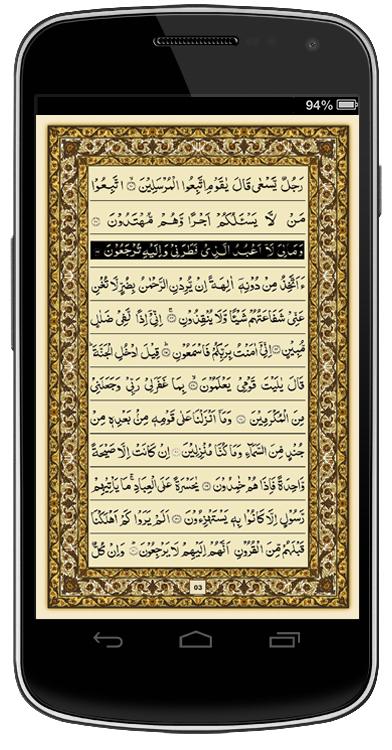 94%
رَجُلٌ يَّسْعٰى قَالَ يٰقَوْمِ اتَّبِعُوا الْمُرْسَلِيْنَ ۞ اتَّبِعُوْا
مَنْ لَّا يَسْـَٔلُكُمْ اَجْرًا وَّهُمْ مُّهْتَدُوْنَ ۞
وَمَالِىَ لَاۤ اَعْبُدُ الَّذِىْ فَطَرَنِىْ وَاِلَيْهِ تُرْجَعُوْنَ ۞
ءَاَتَّخِذُ مِنْ دُوْنِهٖۤ اٰلِهَةً اِنْ يُّرِدْنِ الرَّحْمٰنُ بِضُرٍّ لَّا تُغْنِ
عَنِّىْ شَفَاعَتُهُمْ شَيْـًٔا وَّلَا يُنْقِذُوْنِ ۞ اِنِّىْۤ اِذًا لَّفِىْ ضَلٰلٍ
مُّبِيْنٍ ۞ اِنِّىْۤ اٰمَنْتُ بِرَبِّكُمْ فَاسْمَعُوْنِ ۞ قِيْلَ ادْخُلِ الْجَنَّةَ ؕ
قَالَ يٰلَيْتَ قَوْمِىْ يَعْلَمُوْنَ ۞ بِمَا غَفَرَلِىْ رَبِّىْ وَجَعَلَنِىْ
مِنَ الْمُكْرَمِيْنَ ۞ وَمَاۤ اَنْزَلْنَا عَلٰى قَوْمِهٖ مِنْۢ بَعْدِهٖ مِنْ
جُنْدٍ مِّنَ السَّمَآءِ وَمَا كُنَّا مُنْزِلِيْنَ ۞ اِنْ كَانَتْ اِلَّا صَيْحَةً
وَّاحِدَةً فَاِذَا هُمْ خٰمِدُوْنَ ۞ يٰحَسْرَةً عَلَى الْعِبَادِ ۚ مَا يَاْتِيْهِمْ
رَّسُوْلٍ اِلَّا كَانُوْا بِهٖ يَسْتَهْزِءُوْنَ ۞ اَلَمْ يَرَوْا كَمْ اَهْلَكْنَا
قَبْلَهُمْ مِّنَ الْقُرُوْنِ اَنَّهُمْ اِلَيْهِمْ لَا يَرْجِعُوْنَ ۞ وَاِنْ كُلٌّ
03